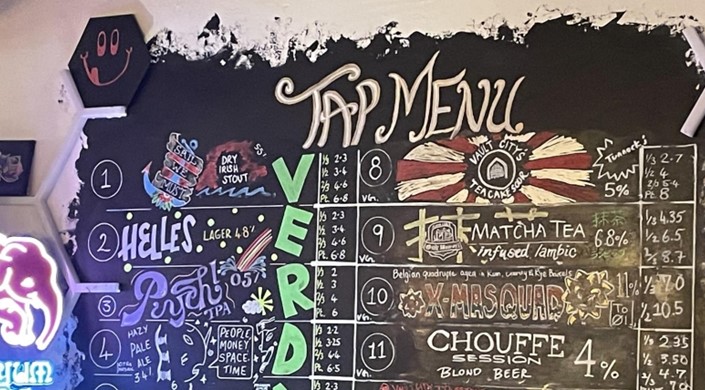 TAP MENU
1
SAIL
WE
MUST
DRY
IRISH
STOUT
1/3 2.3
1/2 3.4
2/3 4.6
Pt. 6.8
2
HELLES
LAGER 4.8%
1/3 2.3
1/2 3.4
2/3 4.6
Pt. 6.8
3
Psych!
TPA
0.5%
4
HAZY
PALE
ALE
PEOPLE
MONEY
SPACE
TIME
1/3 2.2
1/2 3.25
2/3 4.4
Pt. 6.5
VERD
8
Vgn.
VAULT CITY'S
TEACAKE SOUR
Tunnock's
5%
1/3 2.7
1/2 4
2/3 5.4
Pt 8
9
MATCHA TEA
infused lambic
6.8%
1/3 4.35
1/2 6.5
2/3 8.7
10
Vgn.
Belgian quadruple aged in Rum, Brandy & Rye Barrels
X-MASQUAD
11%
TO
Ø1
1/3 7.0
1/2 10.5
11
CHOUFFE
SESSION
BLOND BEER
4%
1/3 2.35
1/2 3.50
2/3 4.7